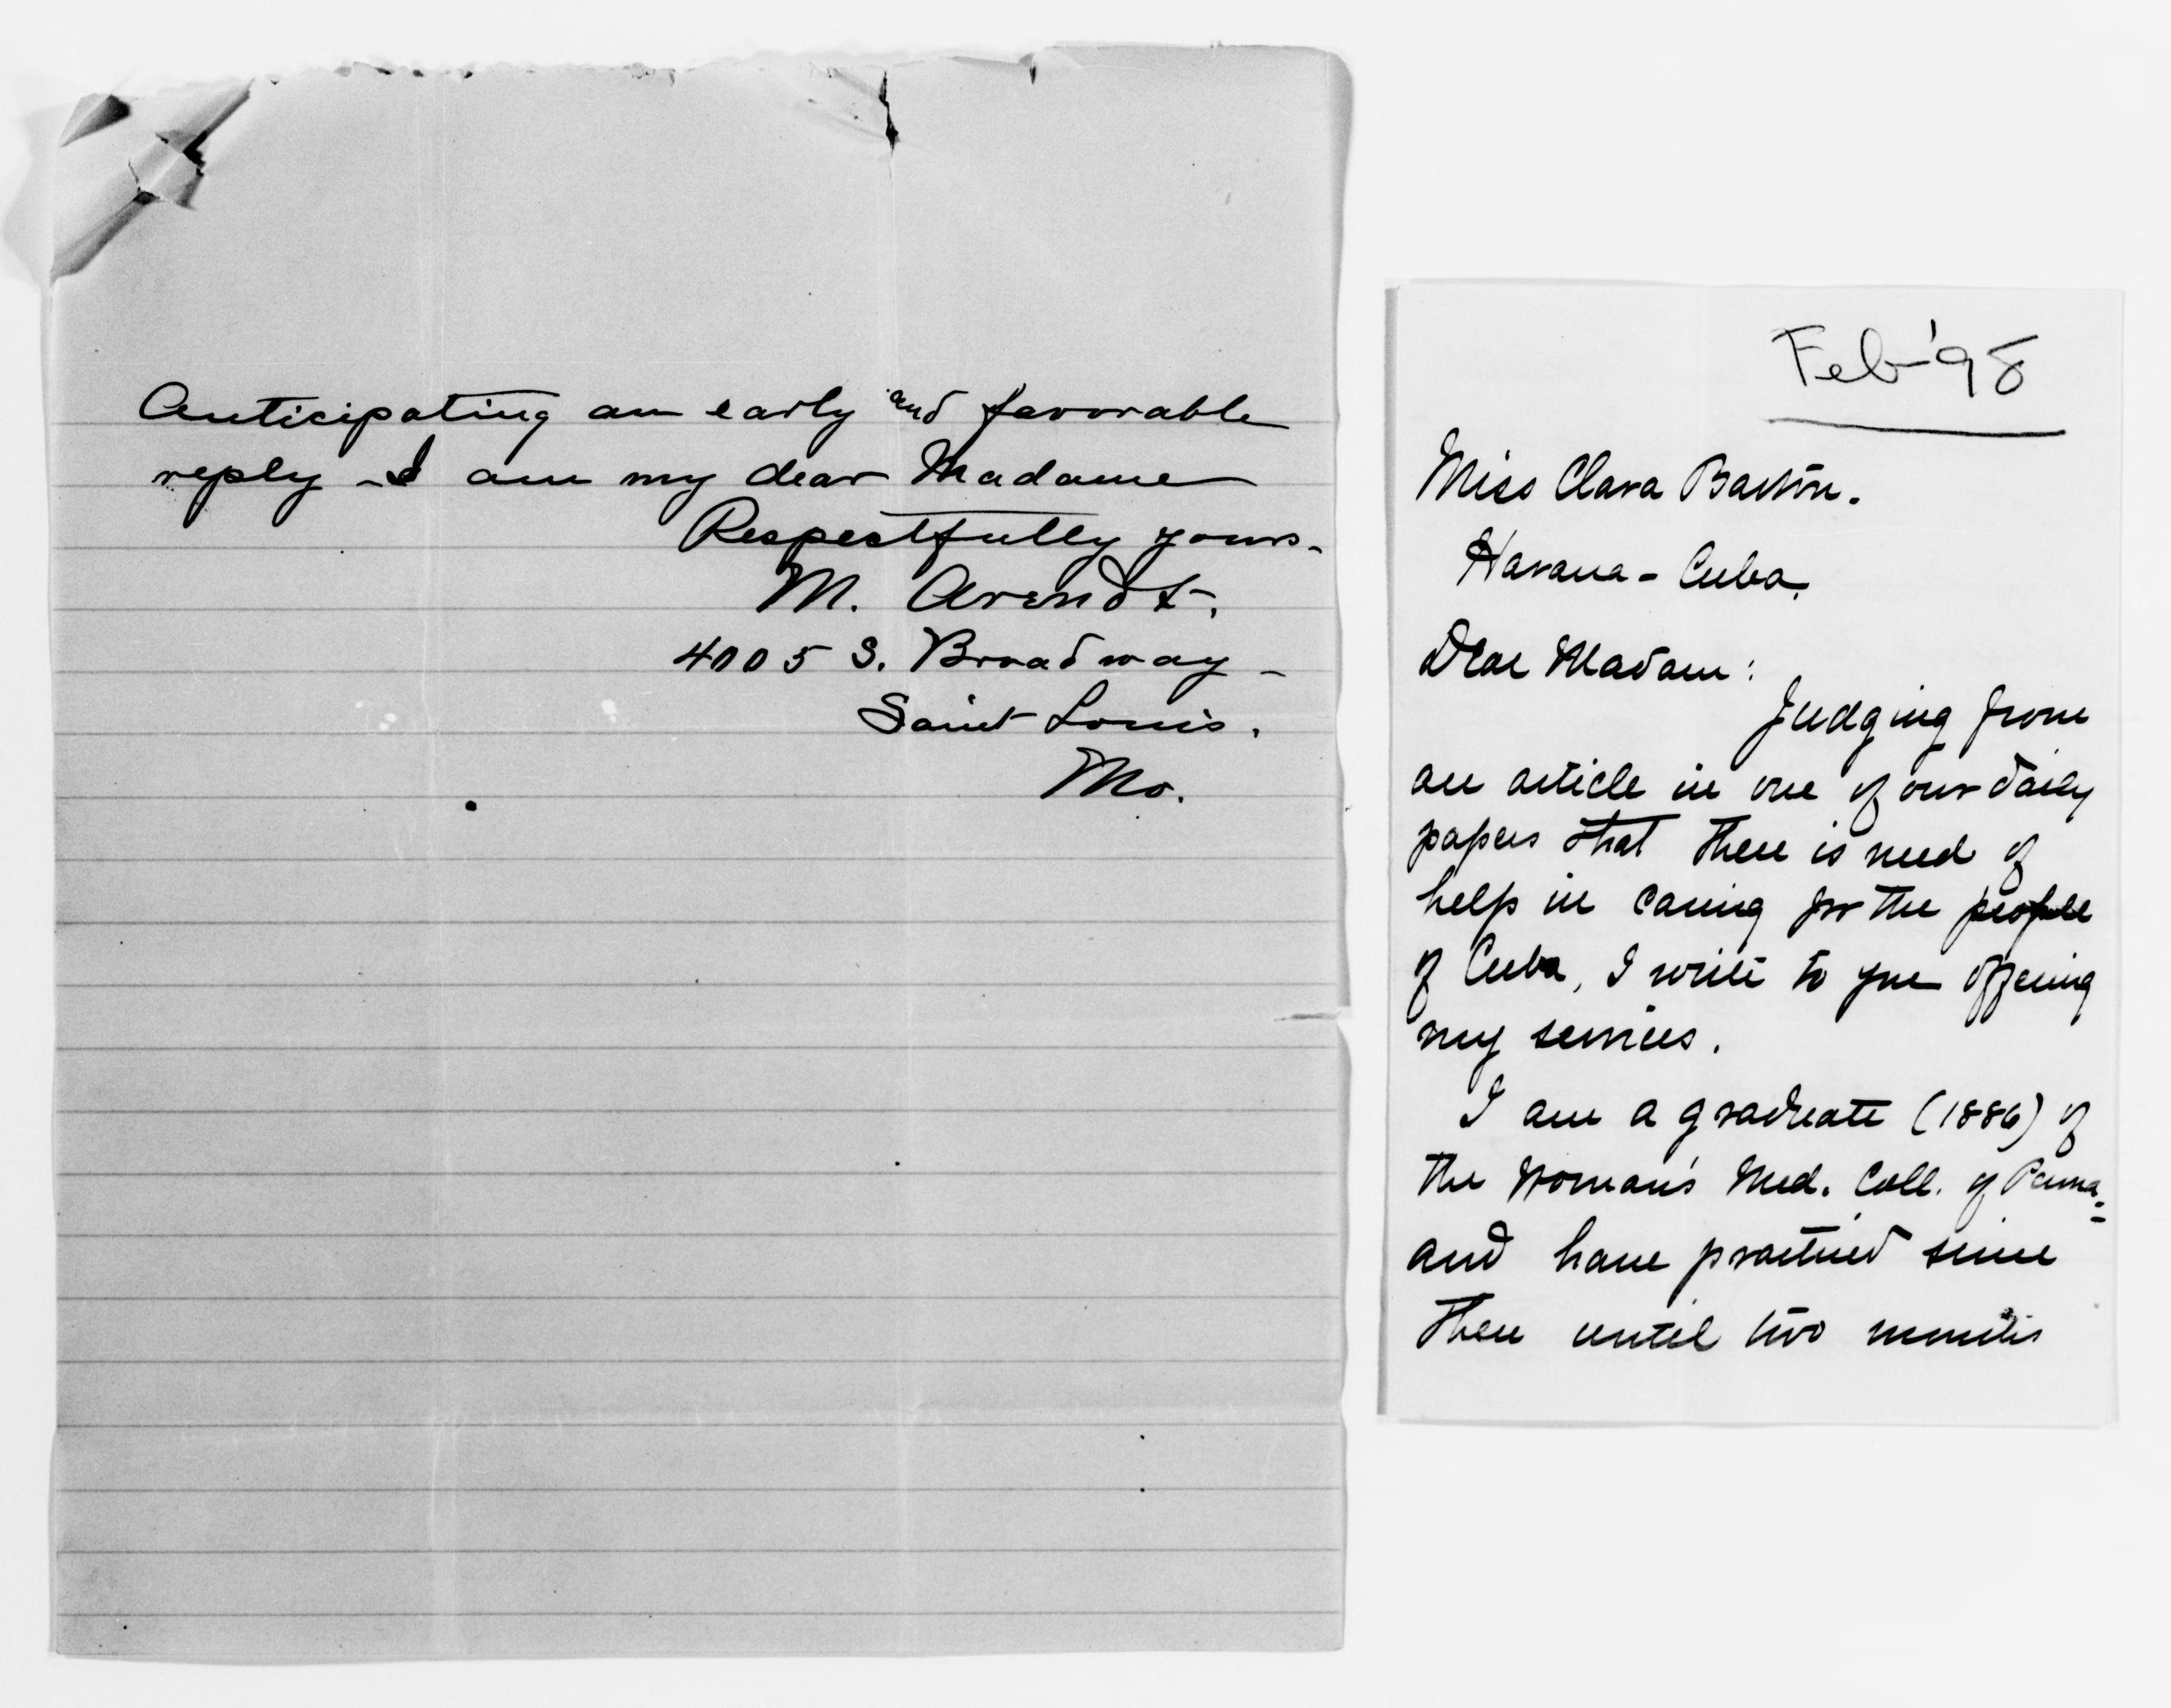 Anticipating an early and favorable
reply - I am my dear Madame
Respectfully yours -
M. Arendt.
4005 S. Broadway -
Saint Louis.
Mo.
Feb '98
Miss Clara Barton.
Havana - Cuba.
Dear Madam:
Judging from
an article in one of our daily
papers that there is need of
help in caring for the people
of Cuba, I write to you offering
my services.
I am a graduate (1886) of
the Woman's Med. Coll. of Penna.
and have practiced since
then until two months